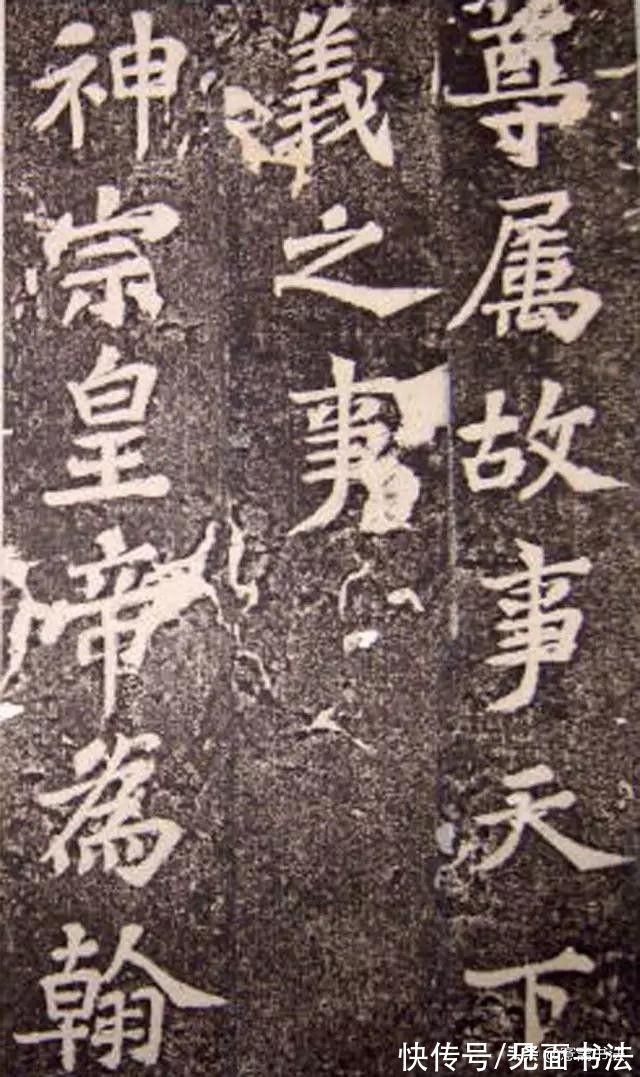 尊属故事天下
義之事
神宗皇帝為翰
快传号/见面书法